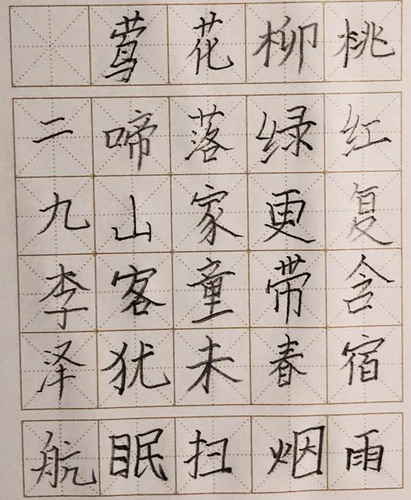 桃红复含宿雨
柳绿更带春烟
花落家童未扫
莺啼山客犹眠
二九李泽航